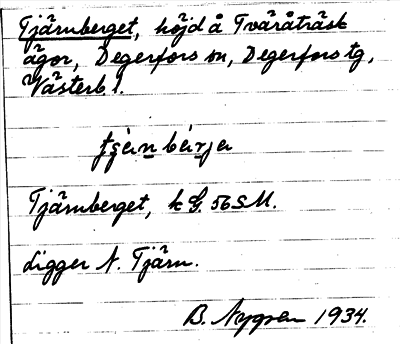 Tjärnberget, höjd å Tväråträsk
ägor, Degerfors sn, Degerfors tg,
Västerb l.
Tjärnberget, k G. 56 S M.
Ligger N. Tjärn.
B. Nygren 1934.